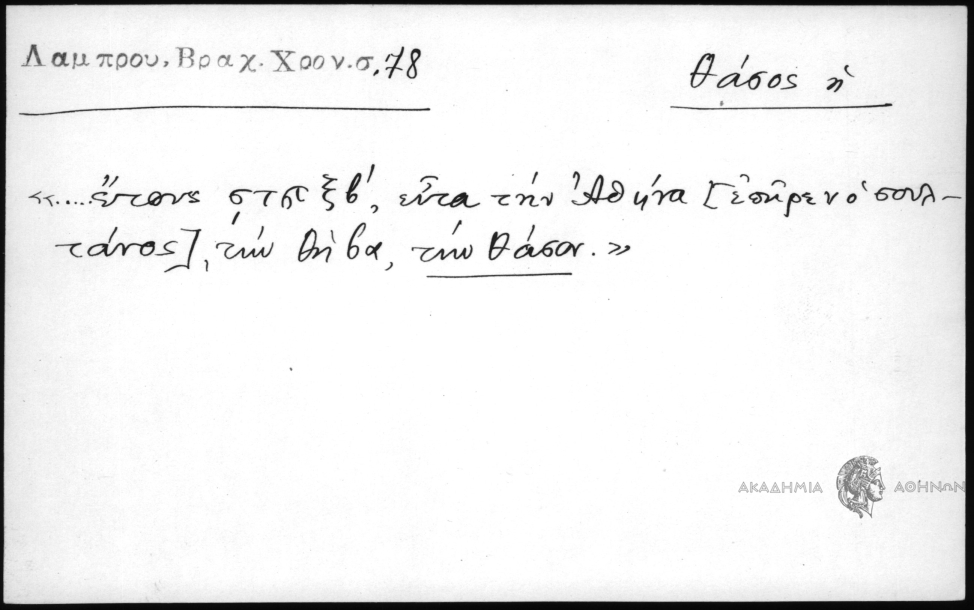 Λαμπρου, Βραχ. Χρον. σ. 78
Θάσος ἡ
«.....ἔτους στπ ξβ', εἶτα τὴν Ἀθήνα [ἐπῆρεν ὁ σουλ-
τάνος], τὴν Θήβα, τὴν Θάσον.»
ΑΚΑΔΗΜΙΑ ΑΘΗΝΩΝ